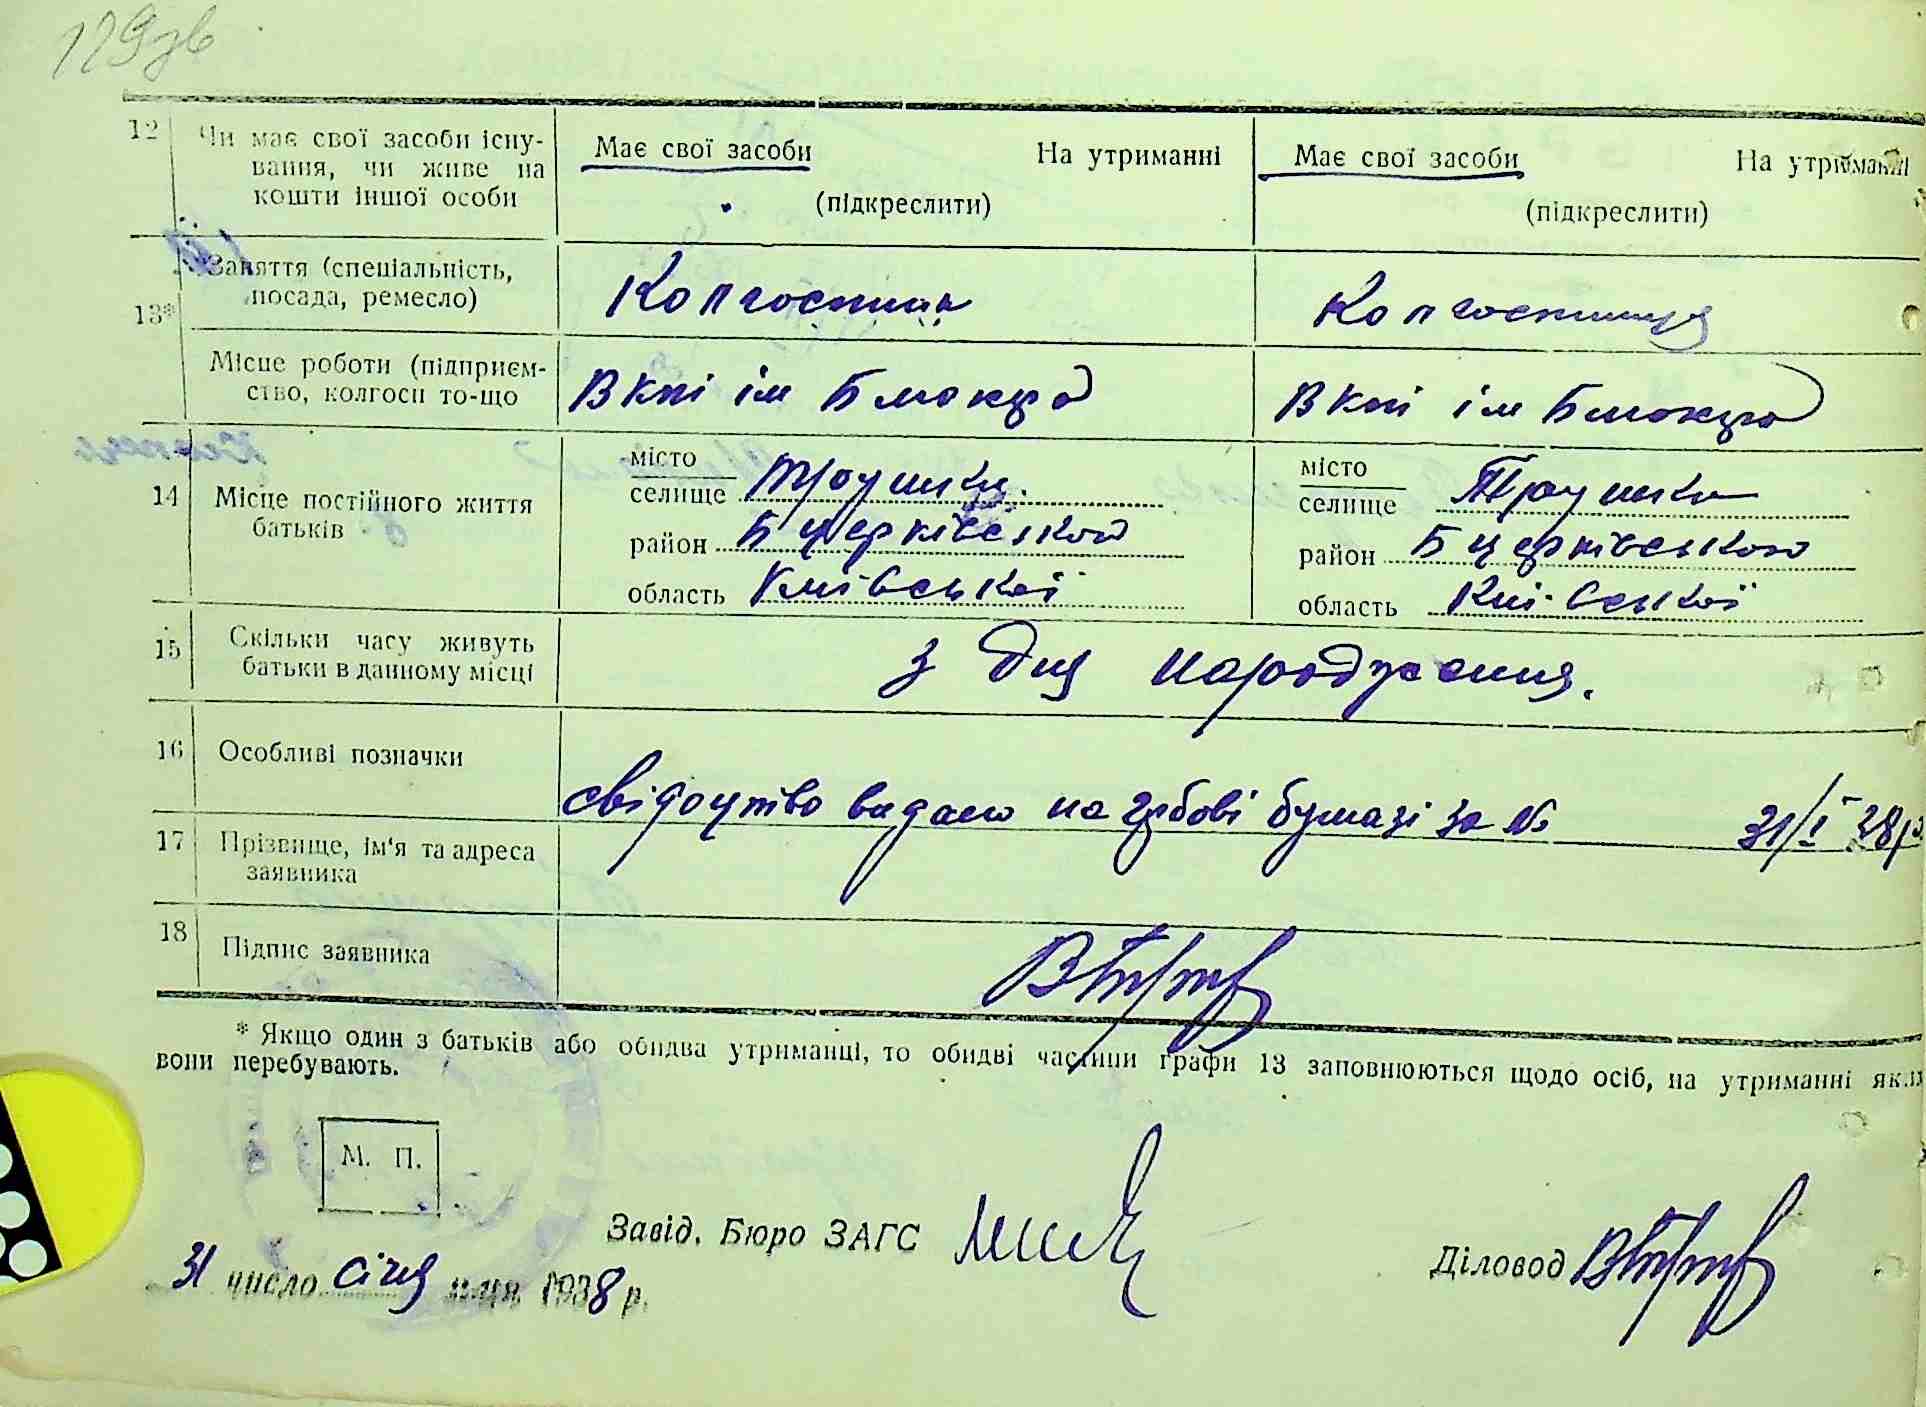 129зв
12 Чи має свої засоби існу-
вання, чи живе на
кошти іншої особи
Має свої засоби На утриманні
(підкреслити)
Має свої засоби На утриманні
(підкреслити)
13*
Заняття (спеціальність,
посада, ремесло)
Колгоспник
Колгоспниця
Місце роботи (підприєм-
ство, колгосп то-що
В клі ім
В клі ім
14 Місце постійного життя
батьків
місто
селище Трушки
район Б церківського
область Київської
місто
селище Трушки
район Б церківського
область Київської
15 Скільки часу живуть
батьки в данному місці
з дня народження.
16 Особливі позначки
свідоцтво видано на гербові бумазі за № 31/I 38р
17 Прізвище, ім'я та адреса
заявника
18 Підпис заявника
* Якщо один з батьків або обидва утриманці, то обидві частини графи 13 заповнюються щодо осіб, на утриманні яких
вони перебувають.
М. П.
Завід. Бюро ЗАГС
Діловод
31 число січня м-ця 1938 р.